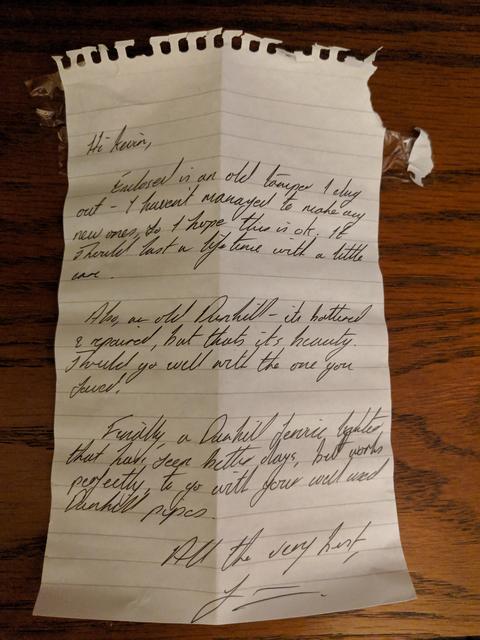 Hi Kevin,
Enclosed is an old tamper I dug
out - I haven't managed to make any
new ones, so I hope this is ok. It
should last a lifetime with a little
care.
Also, an old Dunhill - its battered
& repaired, but thats it's beauty.
Should go well with the one you
saved.
Finally, a Dunhill lighter,
that has seen better days, but works
perfectly, to go with your well used
Dunhill pipes.
All the very best,